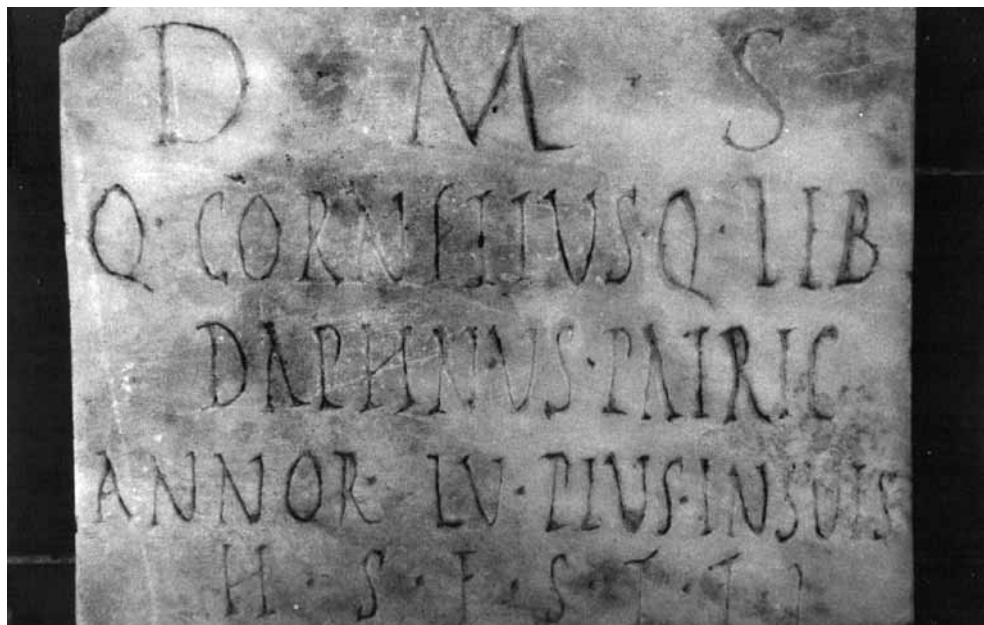 D · M · S
Q · CORNELIUS · Q · LIB
DAPHNUS · PATRIC
ANNOR · LV · PIUS · IN SUIS
H · S · E · S · T · T · L